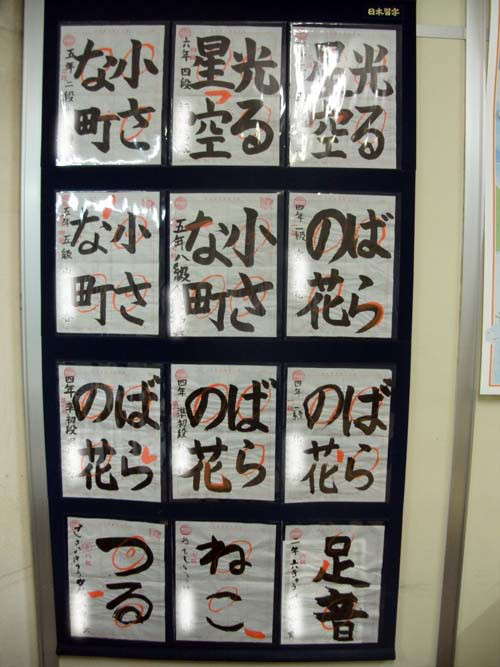 日本習字
小さ
な町
五年 二段
光る
星空
六年 四段
光る
星空
小さ
な町
五年 五級
小さ
な町
五年 八級
ばら
の花
四年 一級
ばら
の花
四年 準初段
ばら
の花
四年 準初段
ばら
の花
四年
つる
ねこ
足音